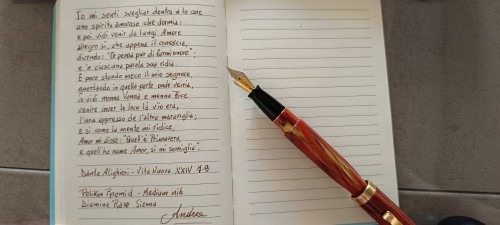 Io mi senti svegliar dentro a lo core
uno spirito amoroso che dormia:
e poi vidi venir da lungi Amore
allegro sì, che appena il conoscia,
dicendo: "Or pensa pur di farmi onore";
e 'n ciascuna parola sua ridia.
E poco stando meco il mio segnore,
guardando in quella parte onde venia,
io vidi monna Vanna e monna Bice
venire inver lo loco là v'io era,
l'una appresso de l'altra maraviglia;
e sì come la mente mi ridice,
Amor mi disse: "Quell'è Primavera,
e quell'ha nome Amor, sì mi somiglia".
Dante Alighieri - Vita Nuova XXIV 7-9
Pelikan - Medium nib
Diamine Sienna
Andrea